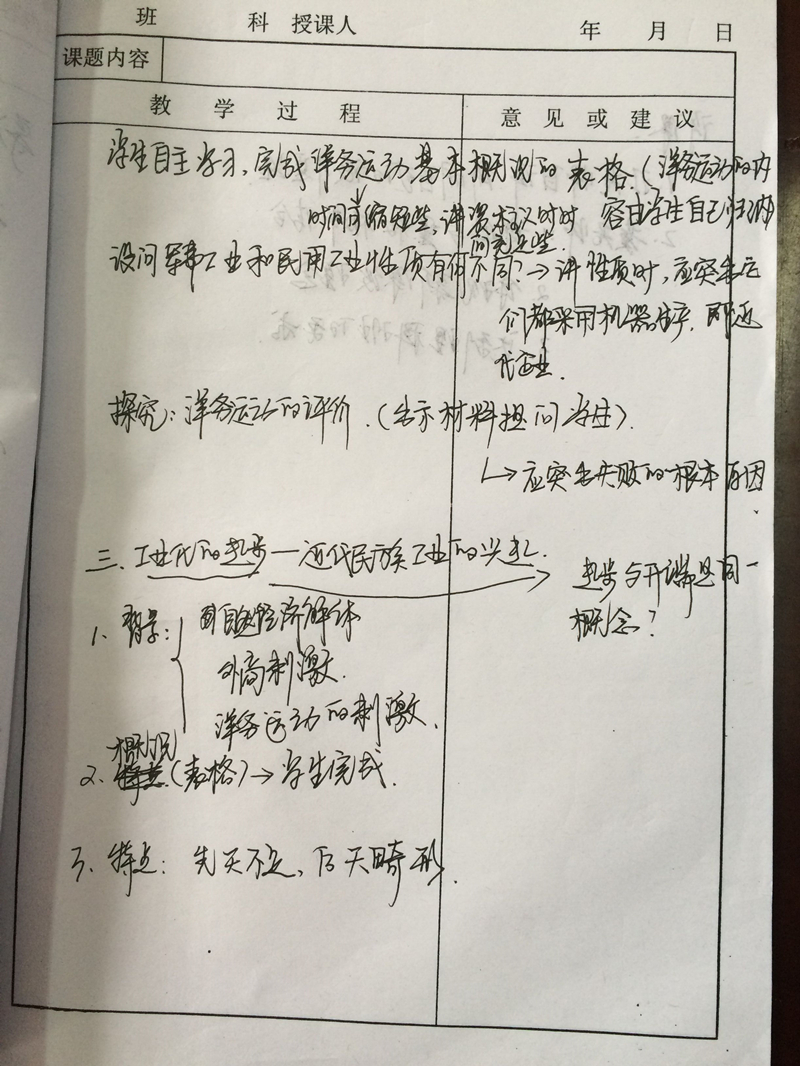 班 科 授课人 年 月 日
课题内容
教 学 过 程 意 见 或 建 议
学生自主学习，完成洋务运动基本概况的表格.(洋务运动的内
时间可缩短些，讲资本主义时时 容由学生自己归纳
间充足些.
设问军事工业和民用工业性质有何不同?→讲性质时，应突出它
们都采用机器生产，即近
代企业.
探究：洋务运动的评价.(出示材料提问学生).
↳应突出失败的根本原因.
三、工业化的起步—近代民族工业的兴起.
起步与开端是同一
概念?
1、背景： 自然经济解体
外商刺激.
洋务运动的刺激.
概况
2、特点(表格)→学生完成.
3、特点：先天不足，后天畸形.